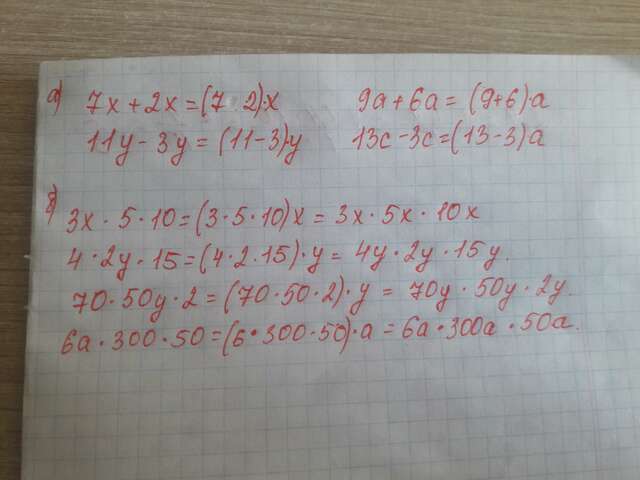 а) 7x + 2x = (7 · 2)·x 9a + 6a = (9+6)·a
11y - 3y = (11-3)·y 13c - 3c = (13-3)a
б) 3x · 5 · 10 = (3 · 5 · 10)x = 3x · 5x · 10x
4 · 2y · 15 = (4 · 2 · 15) · y = 4y · 2y · 15y.
70 · 50y · 2 = (70 · 50 · 2) · y = 70y · 50y · 2y.
6a · 300 · 50 = (6 · 300 · 50) · a = 6a · 300a · 50a.